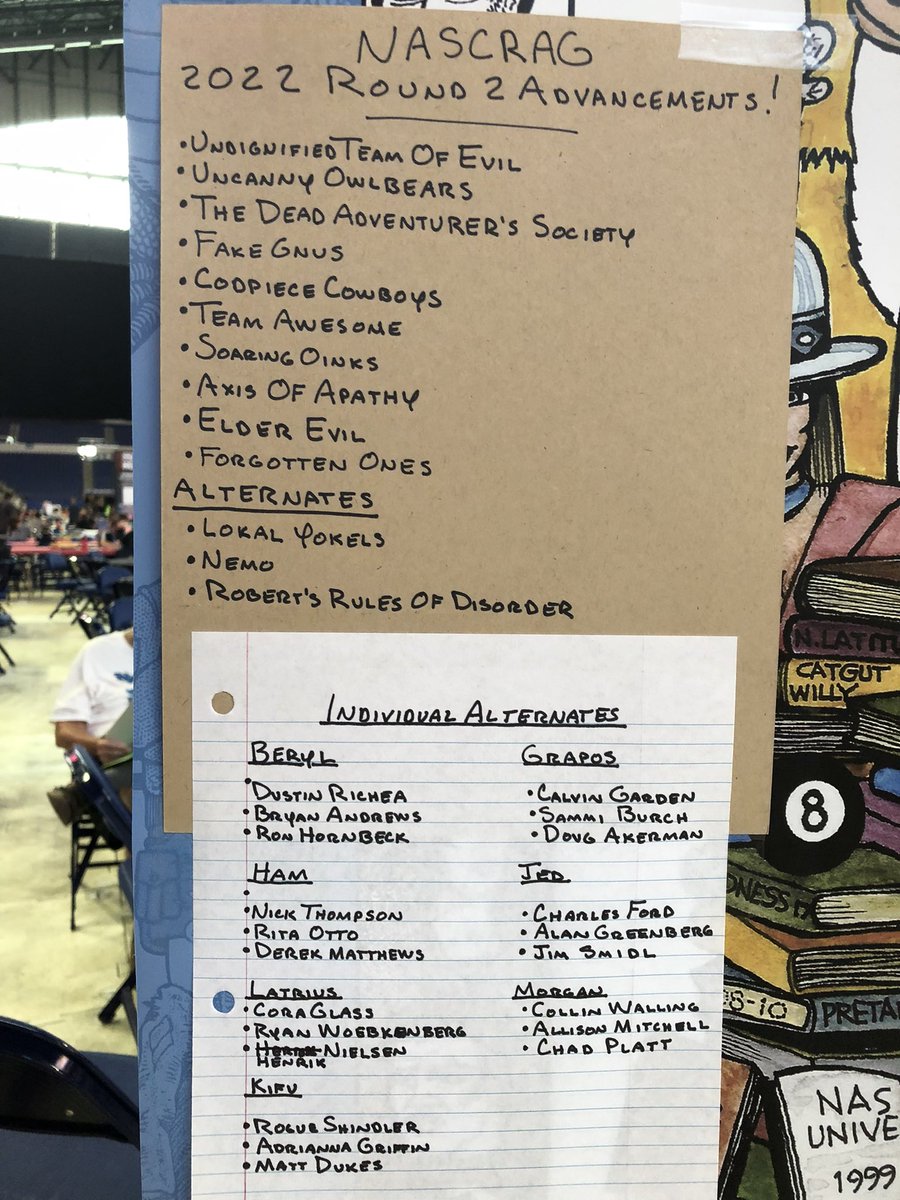 NASCRAG
2022 ROUND 2 ADVANCEMENTS!
• UNDIGNIFIED TEAM OF EVIL
• UNCANNY OWLBEARS
• THE DEAD ADVENTURER'S SOCIETY
• FAKE GNUS
• CODPIECE COWBOYS
• TEAM AWESOME
• SOARING OINKS
• AXIS OF APATHY
• ELDER EVIL
• FORGOTTEN ONES
ALTERNATES
• LOKAL YOKELS
• NEMO
• ROBERT'S RULES OF DISORDER
INDIVIDUAL ALTERNATES
BERYL
• DUSTIN RICHEA
• BRYAN ANDREWS
• RON HORNBECK
GRAPOS
• CALVIN GARDEN
• SAMMI BURCH
• DOUG AKERMAN
HAM
• NICK THOMPSON
• RITA OTTO
• DEREK MATTHEWS
JED
• CHARLES FORD
• ALAN GREENBERG
• JIM SMIDL
LATRIUS
• CORA GLASS
• RYAN WOEBKENBERG
• NIELSEN
HENRIK
MORGAN
• COLLIN WALLING
• ALLISON MITCHELL
• CHAD PLATT
KIFU
• ROGUE SHINDLER
• ADRIANNA GRIFFIN
• MATT DUKES
CATGUT
WILLY
8
8-10
NAS
UNIVE
1999